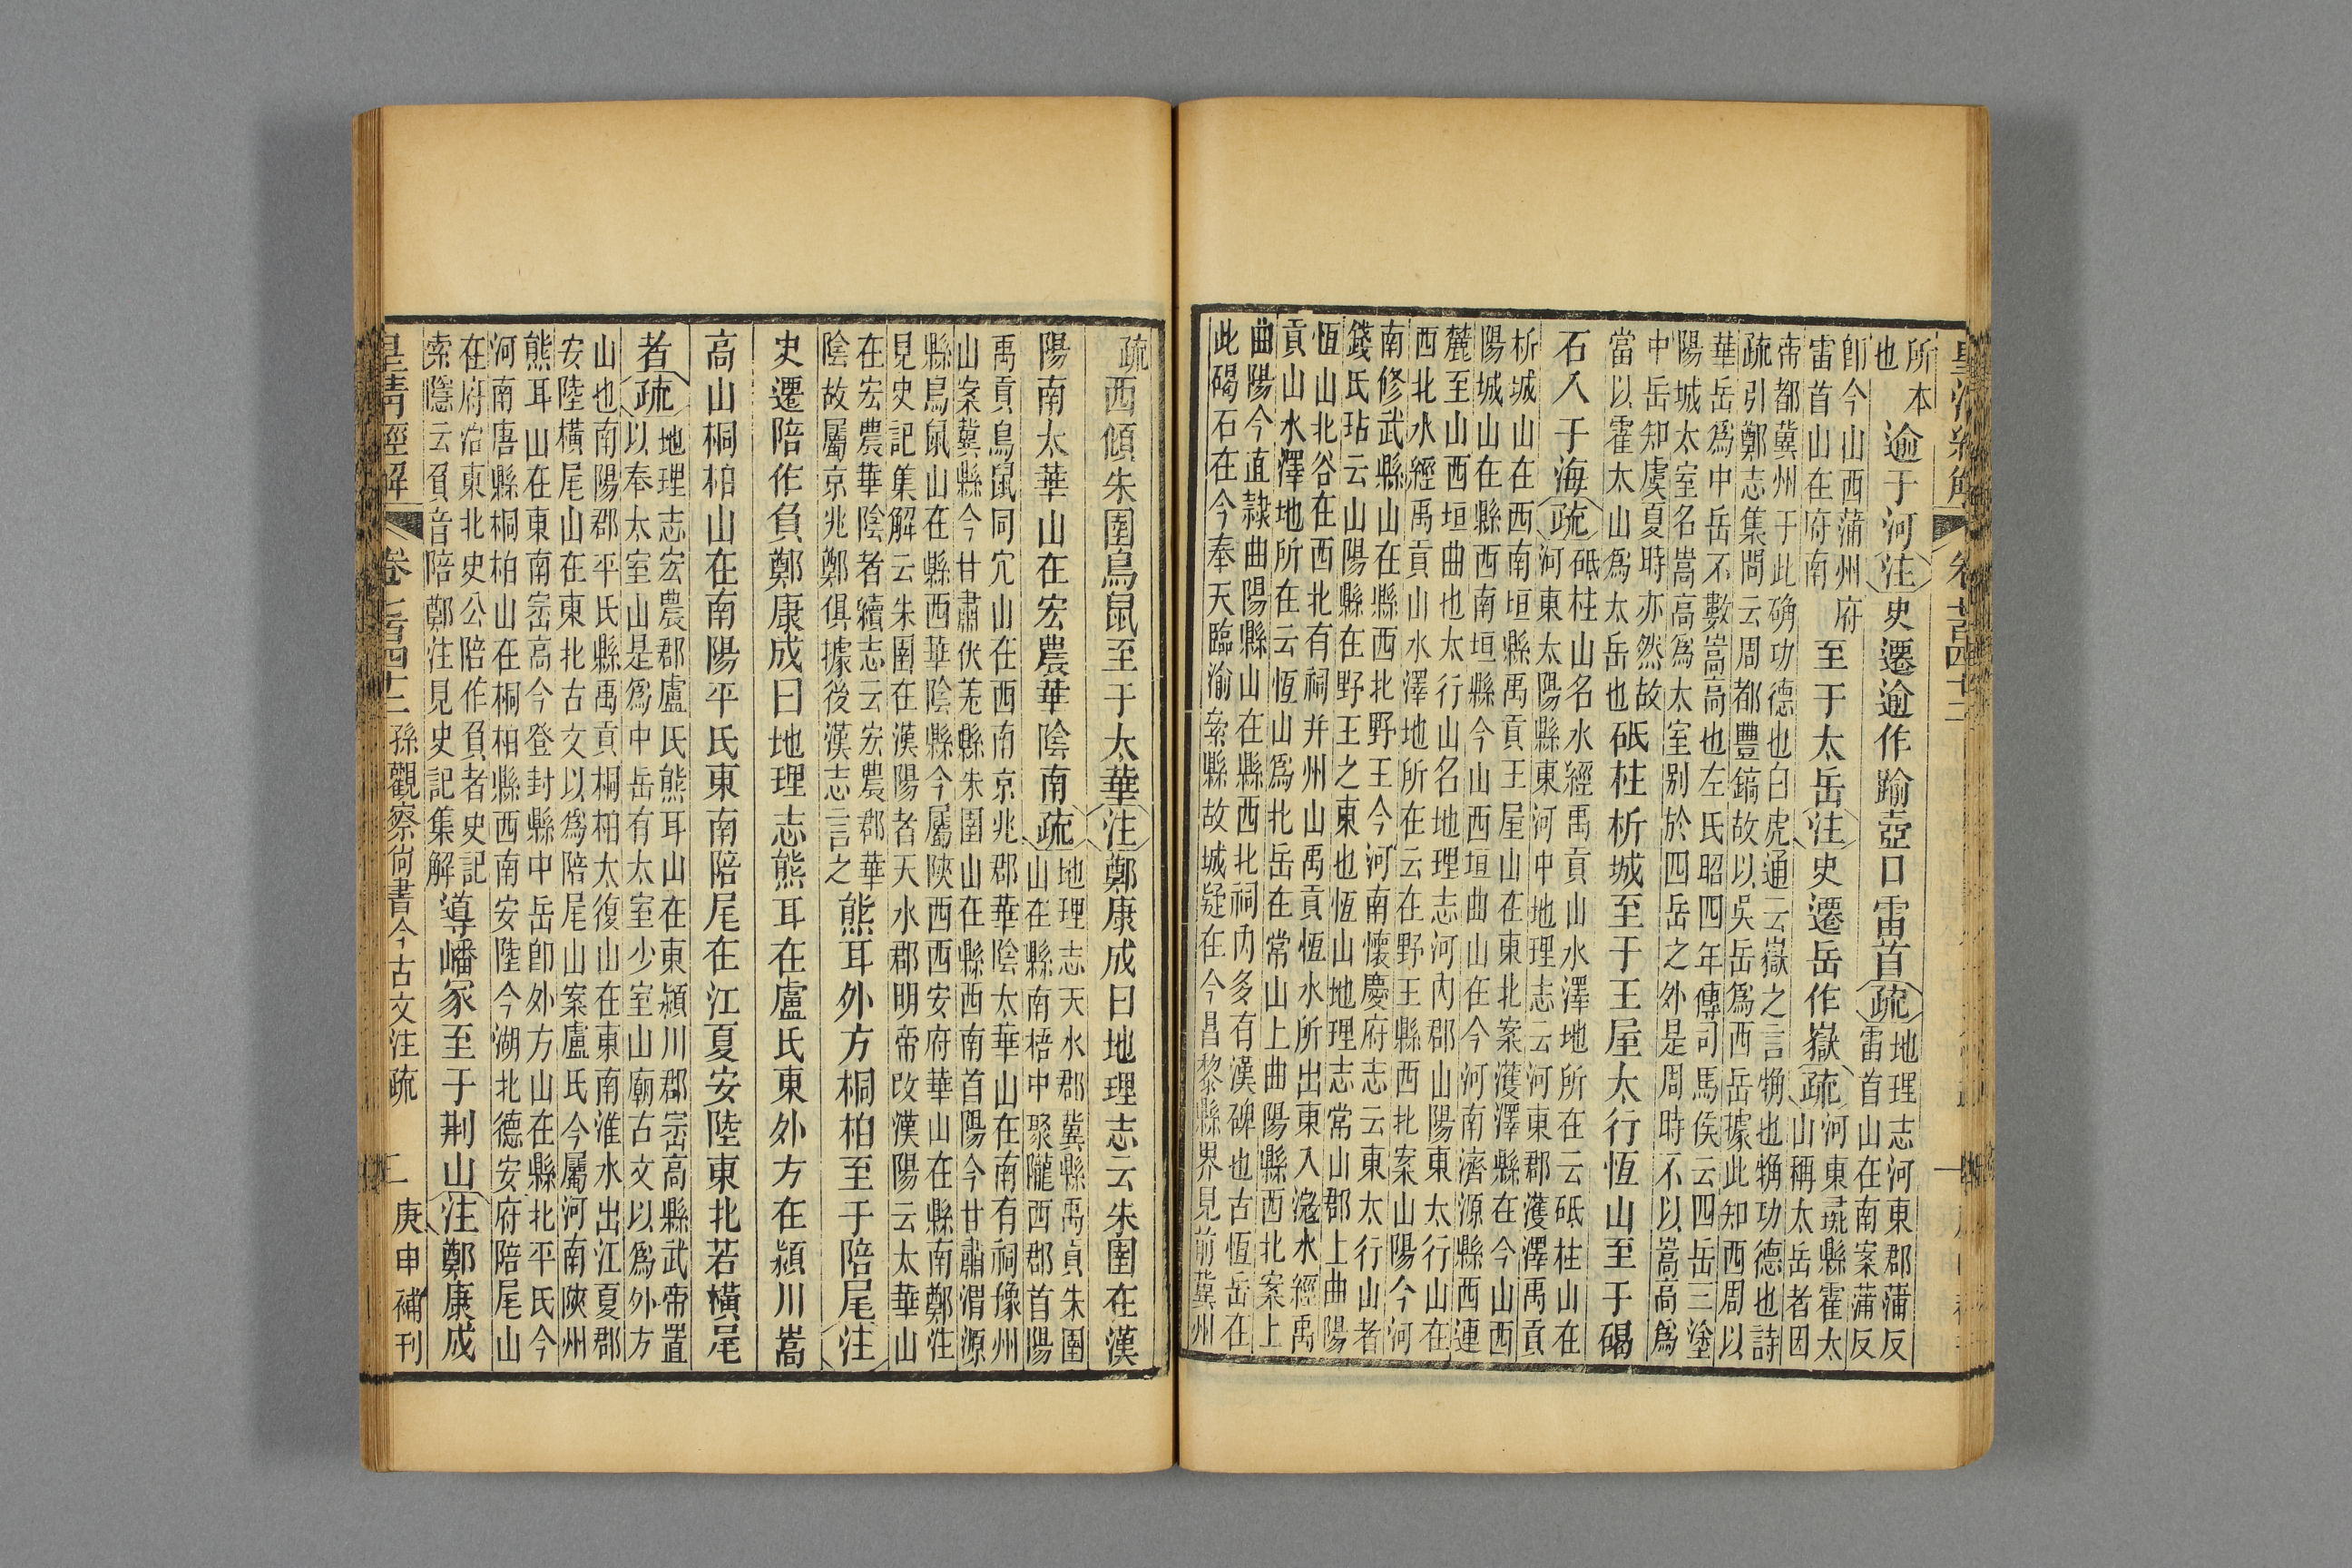 所本
也
逾于河注史遷逾作踰壺口雷首疏
地理志河東郡蒲反
雷首山在南案蒲反
卽今山西蒲州府
雷首山在府南
至于太岳注史遷岳作嶽疏
河東彘縣霍太
山稱太岳者因
帝都冀州于此确功德也白虎通云嶽之言捔也捔功德也詩
疏引鄭志集問云周都豐鎬故以吳岳爲西岳據此知西周以
華岳爲中岳不數嵩高也左氏昭四年傳司馬侯云四岳三塗
陽城太室名嵩高爲太室别於四岳之外是周時不以嵩高爲
中岳知虞夏時亦然故
當以霍太山爲太岳也
砥柱析城至于王屋太行恆山至于碣
石入于海疏
砥柱山名水經禹貢山水澤地所在云砥柱山在
河東太陽縣東河中地理志云河東郡濩澤禹貢
析城山在西南垣縣禹貢王屋山在東北案濩澤縣在今山西
陽城山在縣西南垣縣今山西垣曲山在今河南濟源縣西連
麓至山西垣曲也太行山名地理志河內郡山陽東太行山在
西北水經禹貢山水澤地所在云在野王縣西北案山陽今河
南修武縣山在縣西北野王今河南懷慶府志云東太行山者
錢氏玷云山陽縣在野王之東也恆山地理志常山郡上曲陽
恆山北谷在西北有祠并州山禹貢恆水所出東入滱水經禹
貢山水澤地所在云恆山爲北岳在常山上曲陽縣西北案上
曲陽今直隸曲陽縣山在縣西北祠內多有漢碑也古恆岳在
此碣石在今奉天臨渝絫縣故城疑在今昌黎縣界見前冀州
疏西傾朱圉鳥鼠至于太華注鄭康成曰地理志云朱圉在漢
陽南太華山在宏農華陰南疏
地理志天水郡冀縣禹貢朱圉
山在縣南梧中聚隴西郡首陽
禹貢鳥鼠同穴山在西南京兆郡華陰太華山在南有祠豫州
山案冀縣今甘肅伏羌縣朱圉山在縣西南首陽今甘肅渭源
縣鳥鼠山在縣西華陰縣今屬陝西西安府華山在縣南鄭注
見史記集解云朱圉在漢陽者天水郡明帝改漢陽云太華山
在宏農華陰者續志云宏農郡華
陰故屬京兆鄭俱據後漢志言之
熊耳外方桐柏至于陪尾注
史遷陪作負鄭康成曰地理志熊耳在盧氏東外方在潁川嵩
高山桐柏山在南陽平氏東南陪尾在江夏安陸東北若橫尾
者疏
地理志宏農郡盧氏熊耳山在東潁川郡崈高縣武帝置
以奉太室山是爲中岳有太室少室山廟古文以爲外方
山也南陽郡平氏縣禹貢桐柏太復山在東南淮水出江夏郡
安陸橫尾山在東北古文以爲陪尾山案盧氏今屬河南陝州
熊耳山在東南崈高今登封縣中岳卽外方山在縣北平氏今
河南唐縣桐柏山在桐柏縣西南安陸今湖北德安府陪尾山
在府治東北史公陪作負者史記
索隱云負音陪鄭注見史記集解
導嶓冢至于荆山注鄭康成
皇清經解 卷七百四十三 孫觀察尚書今古文注疏 二 庚申補刊